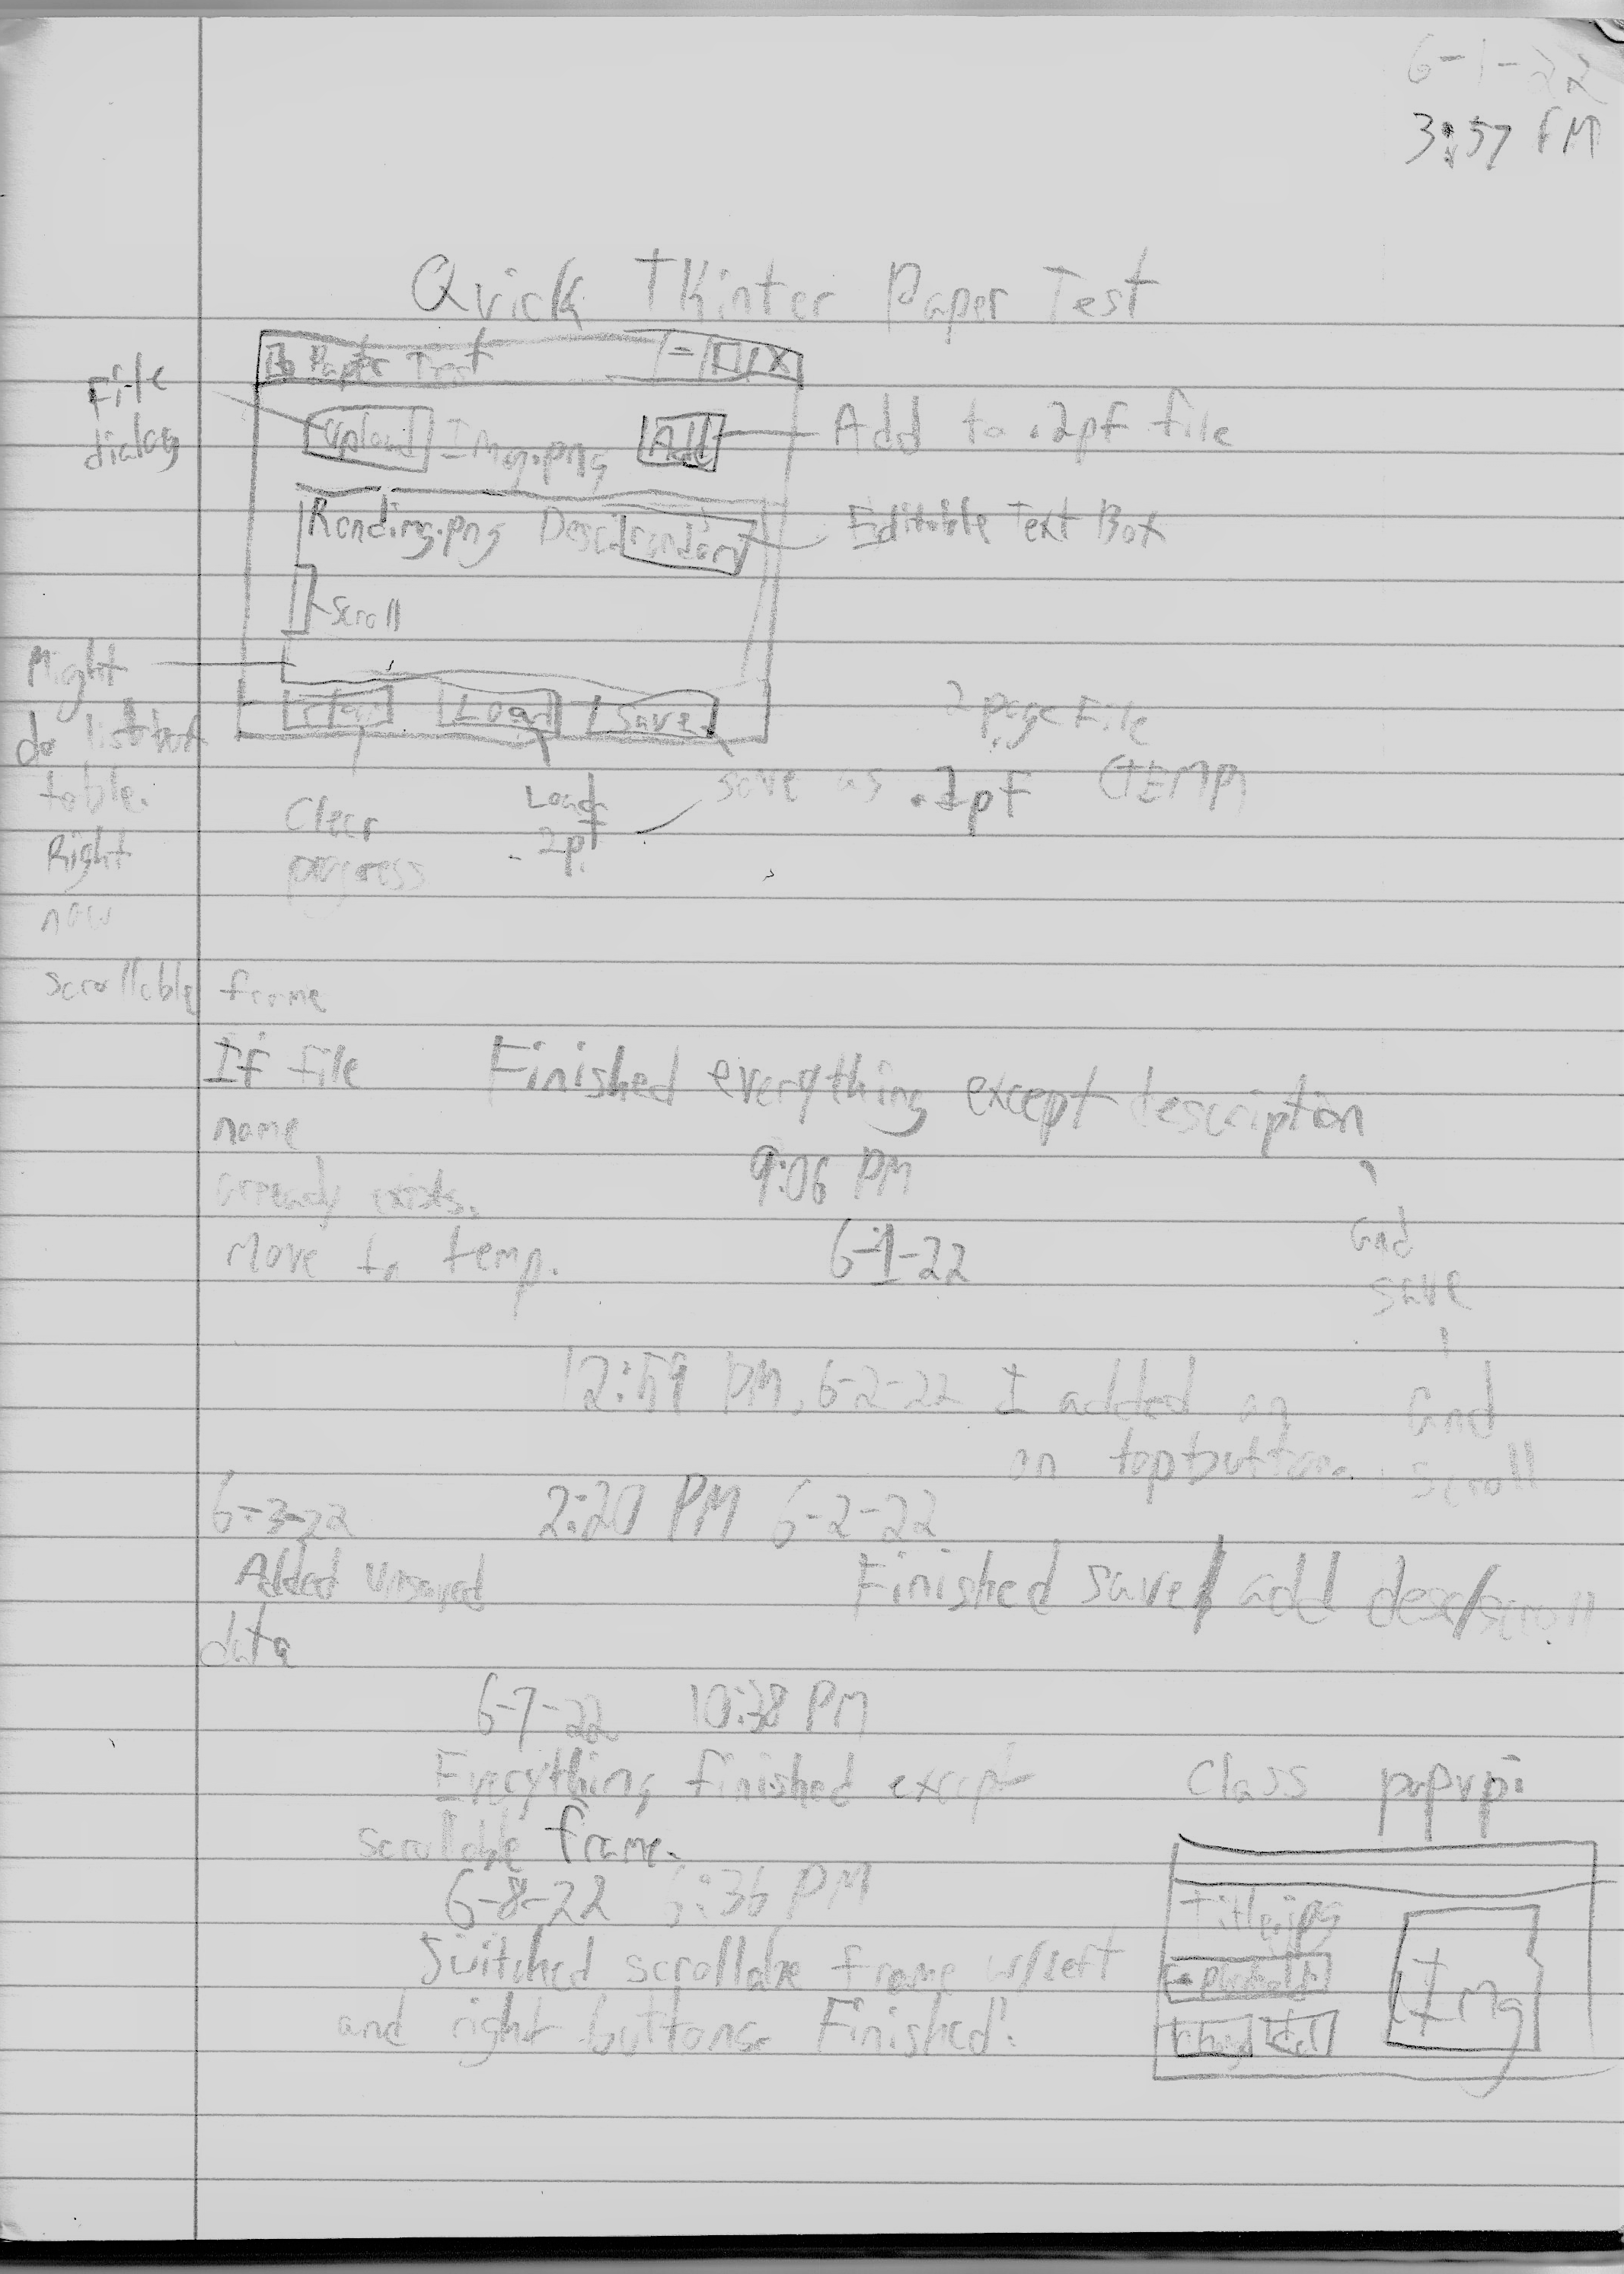 6-1-22
3:57 PM
Quick TKinter Paper Test
Paper Test - X
File
dialog
Upload Img.png Add Add to .2pf file
Randimg.png Desc: random Editable Text Box
Scroll
Might
do listbox
table.
Right
now
scrollable frame
Clear Load Save
Clear
progress
Load
.2pf
save as .2pf (TEMP)
2 page File
If file
name
already exists.
Move to temp.
Finished everything except description
9:06 PM
6-1-22
and
save
and
scroll
12:59 PM, 6-2-22 I added an
on top button.
6-3-22
Added unsaved
data
2:20 PM 6-2-22
Finished save/ add desc/scroll
6-7-22 10:38 PM
Everything finished except
scrollable frame.
6-8-22 6:36 PM
Switched scrollable frame w/left
and right buttons. Finished!
Class popup:
Title.jpg
Img